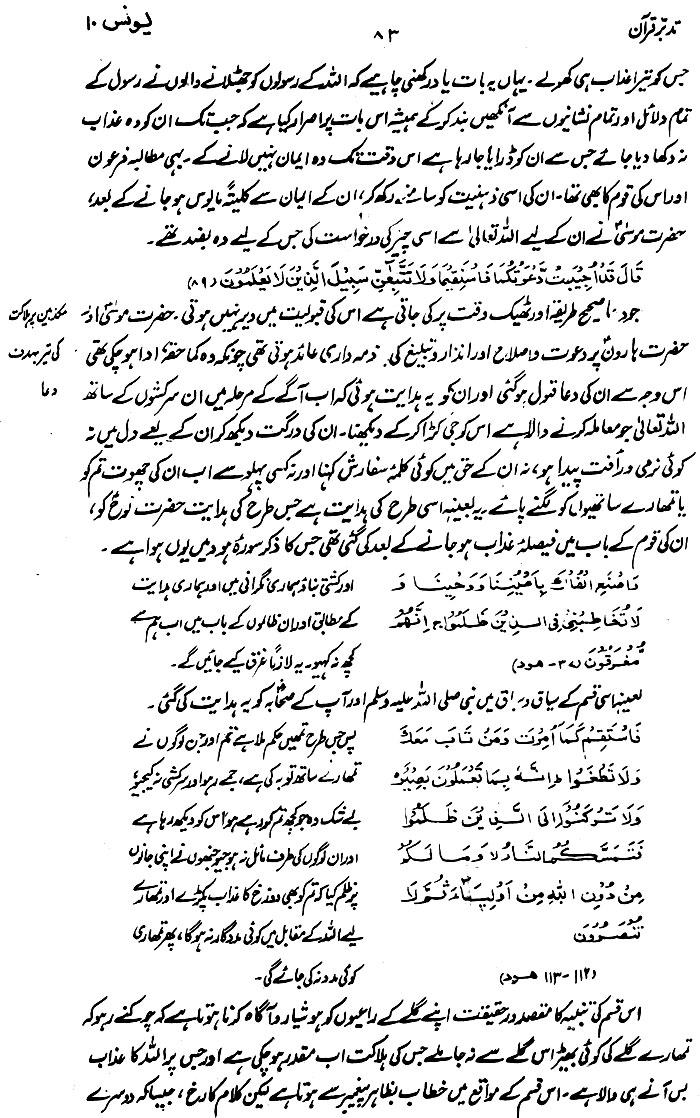 تدبرِ قرآن
۸۳
یونس ۱۰
جس کو تیرا عذاب ہی کھولے ۔ یہاں یہ بات یاد رکھنی چاہیے کہ اللہ کے رسولوں کو جھٹلانے والوں نے رسول کے
تمام دلائل اور تمام نشانیوں سے آنکھیں بند کر کے ہمیشہ اس بات پر اصرار کیا ہے کہ جب تک ان کو وہ عذاب
نہ دکھا دیا جائے جس سے ان کو ڈرایا جا رہا ہے اس وقت تک وہ ایمان نہیں لانے کے ۔ یہی مطالبہ فرعون
اور اس کی قوم کا بھی تھا ۔ ان کی اسی ذہنیت کو سامنے رکھ کر، ان کے ایمان سے کلیۃً مایوس ہو جانے کے بعد،
حضرت موسیٰؑ نے ان کے لیے اللہ تعالیٰ سے اسی چیز کی درخواست کی جس کے لیے وہ بضد تھے ۔
قَالَ قَدْ اُجِیْبَتْ دَّعْوَتُكُمَا فَاسْتَقِیْمَا وَلَا تَتَّبِعٰٓنِّ سَبِیْلَ الَّذِیْنَ لَا یَعْلَمُوْنَ (۸۹)
جو دعا صحیح طریقہ اور ٹھیک وقت پر کی جاتی ہے اس کی قبولیت میں دیر نہیں ہوتی ۔ حضرت موسیٰؑ اور
مکذبین پر ہلاکت
حضرت ہارونؑ پر دعوت و اصلاح اور انذار و تبلیغ کی جو ذمہ داری عائد ہوتی تھی چونکہ وہ کما حقہٗ ادا ہو چکی تھی
کی تیر بہدف
اس وجہ سے ان کی دعا قبول ہوگئی اور ان کو یہ ہدایت ہوئی کہ اب آگے کے مرحلہ میں ان سرکشوں کے ساتھ
دعا
اللہ تعالیٰ جو معاملہ کرنے والا ہے اس کو جی کڑا کر کے دیکھنا ۔ ان کی درگت دیکھ کر ان کے لیے دل میں نہ
کوئی نرمی و رأفت پیدا ہو، نہ ان کے حق میں کوئی کلمۂ سفارش کہنا اور نہ کسی پہلو سے اب ان کی چھوت تم کو
یا تمہارے ساتھیوں کو لگنے پائے ۔ یہ بعینہٖ اسی طرح کی ہدایت ہے جس طرح کی ہدایت حضرت نوحؑ کو،
ان کی قوم کے باب میں فیصلۂ عذاب ہو جانے کے بعد کی گئی تھی جس کا ذکر سورۂ ہود میں یوں ہوا ہے ۔
وَاصْنَعِ الْفُلْكَ بِاَعْیُنِنَا وَوَحْیِنَا وَ
لَا تُخَاطِبْنِیْ فِی الَّذِیْنَ ظَلَمُوْا ج اِنَّهُمْ
مُّغْرَقُوْنَ (۳۷ - ھود)
اور کشتی بناؤ ہماری نگرانی میں اور ہماری ہدایت
کے مطابق اور ان ظالموں کے باب میں اب ہم سے
کچھ نہ کہیو۔ یہ لازماً غرق کیے جائیں گے۔
بعینہٖ اسی قسم کے سیاق و سباق میں نبی صلی اللہ علیہ وسلم اور آپ کے صحابہؓ کو یہ ہدایت کی گئی ۔
فَاسْتَقِمْ كَمَآ اُمِرْتَ وَمَنْ تَابَ مَعَكَ
وَلَا تَطْغَوْا ط اِنَّهٗ بِمَا تَعْمَلُوْنَ بَصِیْرٌ
وَلَا تَرْكَنُوْٓا اِلَی الَّذِیْنَ ظَلَمُوْا
فَتَمَسَّكُمُ النَّارُ لا وَمَا لَكُمْ
مِّنْ دُوْنِ اللهِ مِنْ اَوْلِیَآءَ ثُمَّ لَا
تُنْصَرُوْنَ
(۱۱۲ - ۱۱۳ ھود)
پس جس طرح تمہیں حکم ملا ہے تم اور جن لوگوں نے
تمہارے ساتھ توبہ کی ہے، جمے رہو اور سرکشی نہ کیجیو
بے شک وہ جو کچھ تم کر رہے ہو اس کو دیکھ رہا ہے
اور ان لوگوں کی طرف مائل نہ ہوجیو جنھوں نے اپنی جانوں
پر ظلم کیا کہ تم کو بھی دوزخ کا عذاب پکڑے اور تمہارے
لیے اللہ کے مقابل میں کوئی مددگار نہ ہوگا، پھر تمہاری
کوئی مدد نہ کی جائے گی۔
اس قسم کی تنبیہ کا مقصد درحقیقت اپنے گلے کے راعیوں کو ہوشیار و آگاہ کرنا ہوتا ہے کہ چوکنے رہو کہ
تمہارے گلے کی کوئی بھیڑ اس گلے سے نہ جا ملے جس کی ہلاکت اب مقدر ہو چکی ہے اور جس پر اللہ کا عذاب
بس آنے ہی والا ہے ۔ اس قسم کے مواقع میں خطاب بظاہر پیغمبر سے ہوتا ہے لیکن کلام کا رخ، جیسا کہ دوسرے